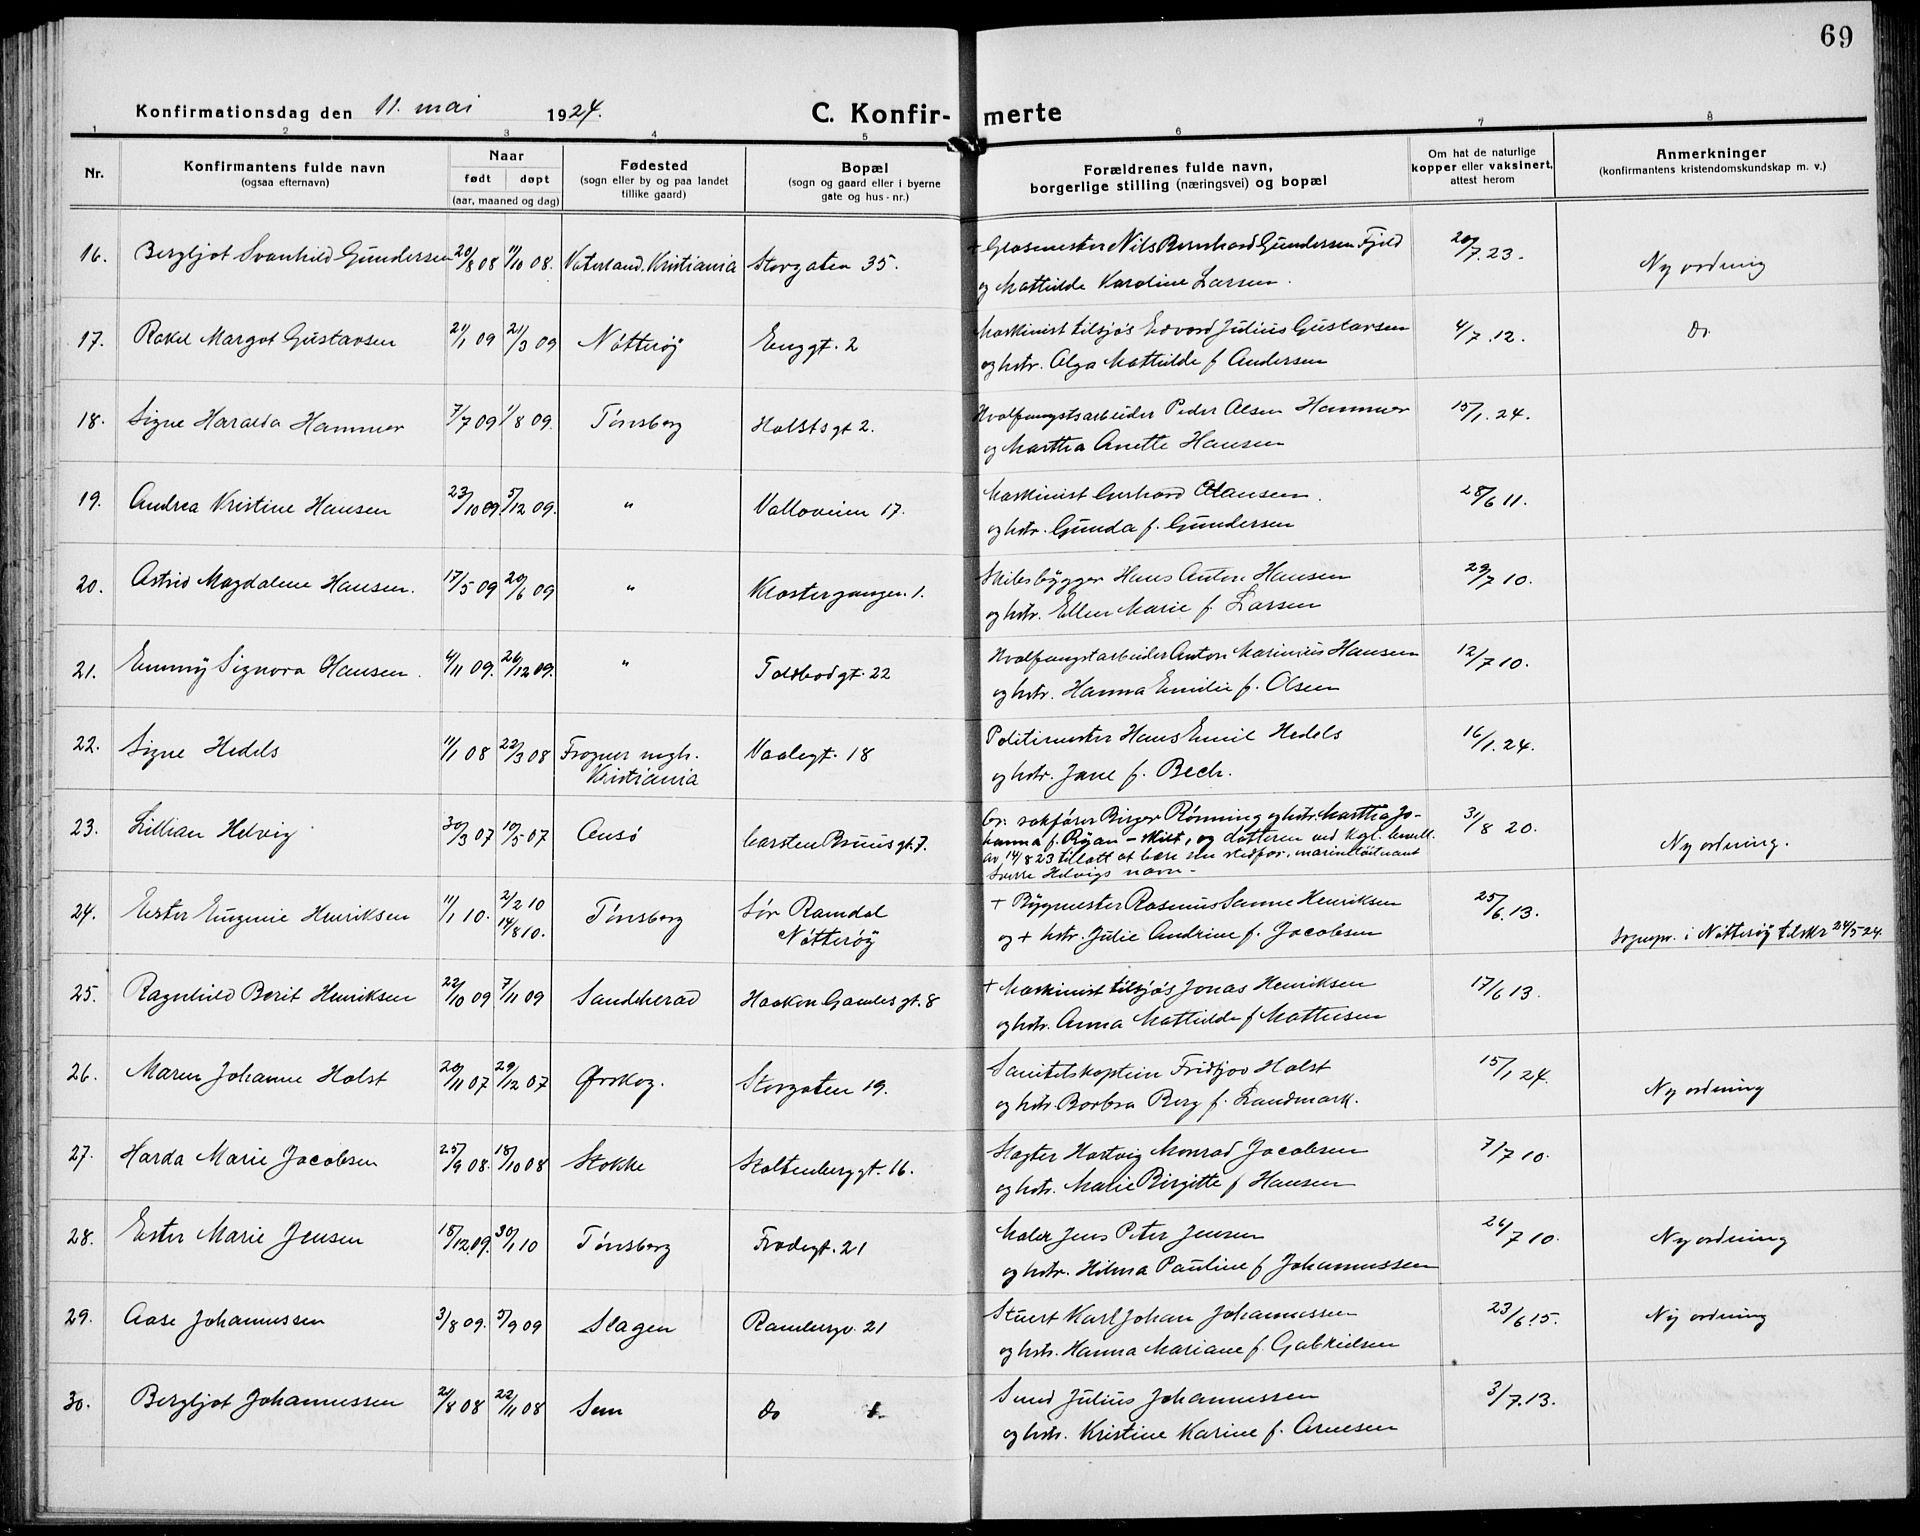 69
Konfirmationsdag den 11. mai 1924. C. Konfir- merte
1 2 3 4 5 6 7 8
Nr. Konfirmantens fulde navn (ogsaa efternavn) Naar født døpt (aar, maaned og dag) Fødested (sogn eller by og paa landet tillike gaard) Bopæl (sogn og gaard eller i byerne gate og hus-nr.) Forældrenes fulde navn, borgerlige stilling (næringsvei) og bopæl Om hat de naturlige kopper eller vaksinert, attest herom Anmerkninger (konfirmantens kristendomskundskap m. v.)
16. Bergljot Svanhild Gundersen 20/8 08 11/10 08. Vaterland, Kristiania Storgaten 35. + Glasmester Nils Bernhard Gundersen Fjeld 20/7.23. Ny ordning
og Mathilde Karoline Larsen.
17. Rakel Margot Gustavsen 21/1 09 21/3 09 Nøtterøy Enggt. 2 Maskinist tilsjøs Edvard Julius Gustavsen 4/7.12. Do
og hstr. Olga Mathilde f Andersen
18. Signe Haralda Hammer 7/7 09 1/8 09. Tønsberg Holstsgt 2. Hvalfangstsarbeider Peder Olsen Hammer 15/1.24.
og Martha Anette Hansen
19. Andrea Kristine Hansen 23/10 09. 5/12 09. " Valløveien 17. Maskinist Gerhard Hansen. 28/6 11.
og hstr. Gunda f. Gundersen
20. Astrid Magdalene Hansen. 17/5 09 20/6 09 " Klostergangen. 1. Skibsbygger Hans Anton Hansen 29/7 10.
og hstr. Ellen Marie f. Larsen
21. Emmy Signora Hansen. 4/11 09. 26/12 09. " Toldbodgt. 22 Hvalfangstarbeider Anton Marinius Hansen 12/7 10.
og hstr. Hanna Emilie f. Olsen
22. Signe Hedels 11/1 08 22/3 08 Frogner mgh. Kristiania Vaalegt. 18 Politimester Hans Emil Hedels 16/1.24.
og hstr. Jane f. Bech.
23. Lillian Helvig 30/3 07 10/5 07 Ansö Carsten Bruusgt. 7. Or. sakfører Birger Rønning og hstr. Martha Jo- 31/8 20. Ny ordning.
hanna f. Ryan - skilt, og datteren ved kgl. bevill.
av 14/8 23 tillatt at bære sin stedfar, marineløitnant
Sverre Helvigs navn -
24. Ester Eugenie Henriksen 11/1 10. 2/2 10 14/8 10. Tønsberg Sør Ramdal Nøtterøy + Bygmester Rasmus Sanne Henriksen 25/6.13. Sognepr. i Nøtterøy tilskr 24/5-24.
og + hstr. Julie Andrine f. Jacobsen
25. Ragnhild Berit Henriksen 22/10 09 7/11 09 Sandeherad Haakon Gamles gt. 8 + Maskinist tilsjøs Jonas Henriksen 17/6 13.
og hstr. Anna Mathilde f Mathisen
26. Maren Johanne Holst 20/11 07 29/12 07 Ørskog. Storgaten 19. Sanitetskaptein Fridtjov Holst 15/1 24. Ny ordning
og hstr. Borbra Berg f. Landmark.
27. Harda Marie Jacobsen 25/9 08. 18/10 08 Stokke Stoltenberggt. 16. Slagter Hartvig Monrad Jacobsen 7/7 10.
og hstr. Marie Birgitte f Hansen
28. Ester Marie Jensen 18/12 09. 30/1 10 Tønsberg Frodegt. 21 Maler Jens Peter Jensen 26/7 10. Ny ordning
og hstr. Hilma Pauline f Johannessen
29. Aase Johannessen 3/8 09. 5/9 09 Slagen Rambergv. 21 Stuert Karl Johan Johannessen 23/6.15. Ny ordning
og hstr. Hanna Mariane f. Gabrielsen
30. Bergljot Johannessen 21/8 08 22/11 08 Sem Do Smed Julius Johannessen 3/7.13.
og hstr. Kristine Karine f. Arnesen